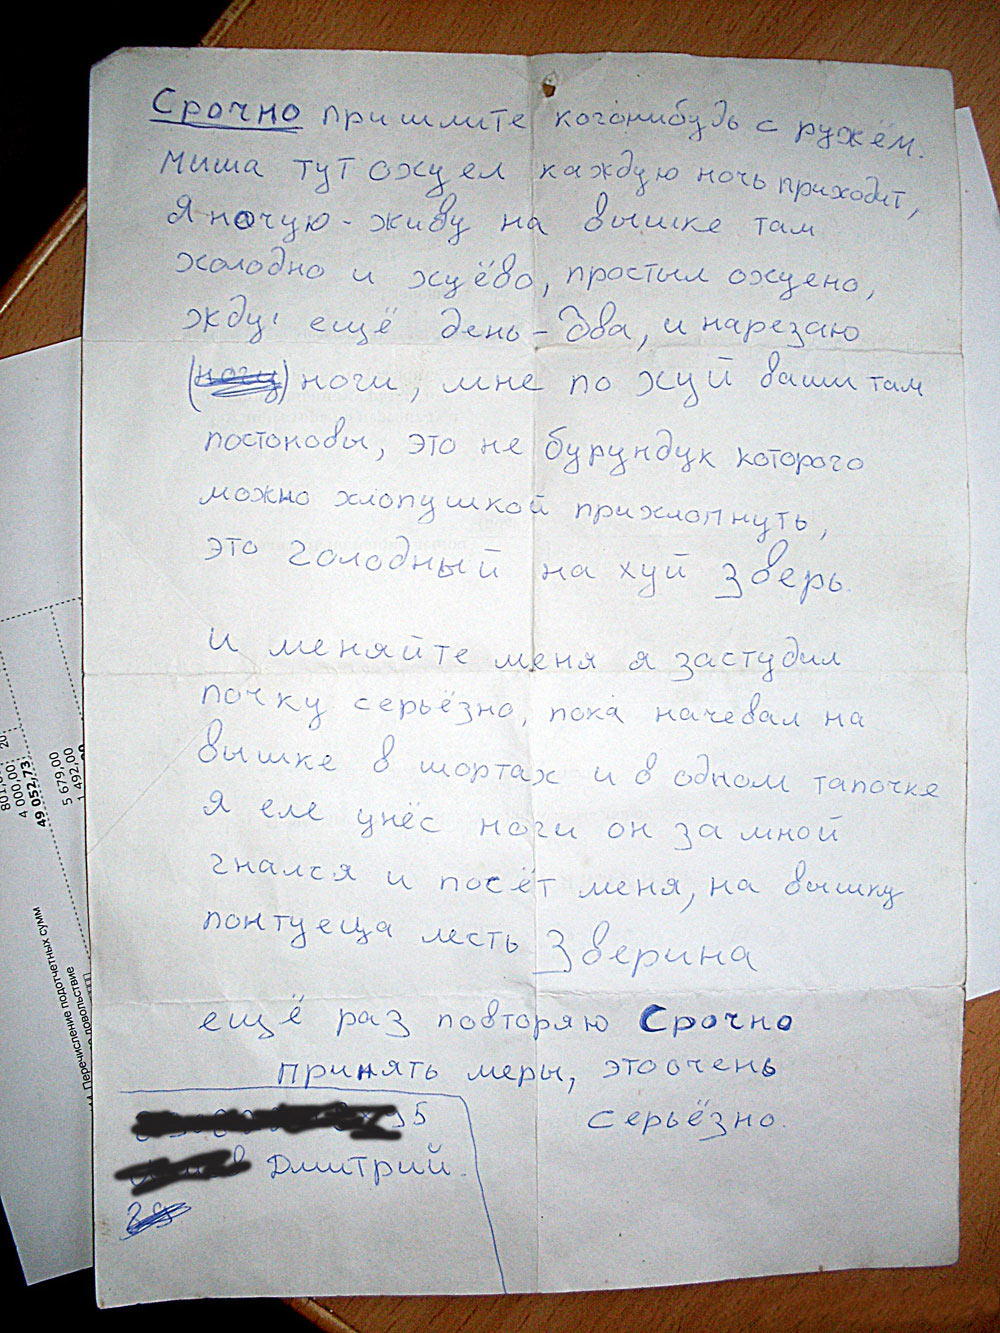 Срочно пришлите когонибудь с ружём.
Миша тут охуел каждую ночь приходит,
Я ночую - живу на вышке там
холодно и хуёво, простыл охуено,
жду ещё день - два, и нарезаю
(ногу) ноги, мне по хуй ваши там
постоновы, это не бурундук которого
можно хлопушкой прихлопнуть,
это голодный на хуй зверь.
И меняйте меня я застудил
почку серьёзно, пока начевал на
вышке в шортах и в одном тапочке
Я еле унёс ноги он за мной
гнался и посёт меня, на вышку
понтуеща лесть Зверина
ещё раз повторяю Срочно
принять меры, это очень
серьёзно.
55
Дмитрий.
801,
20.
4 000,00;
49 052,73;
5 679,00
1 492,00
Перечисление подотчетных сумм
довольствие